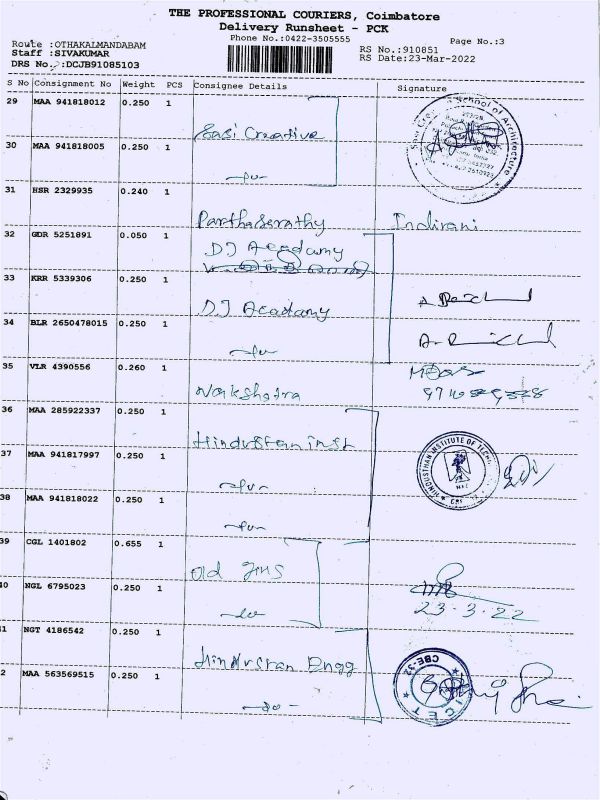 THE PROFESSIONAL COURIERS, Coimbatore
Delivery Runsheet - PCK
Phone No.:0422-3505555
Page No.:3
Route :OTHAKALMANDABAM
Staff :SIVAKUMAR
DRS No.:DCJB91085103
RS No.:910851
RS Date:23-Mar-2022
S No Consignment No Weight PCS Consignee Details Signature
29 MAA 941818012 0.250 1
Sasi Creative
School of Architecture
30 MAA 941818005 0.250 1
31 HSR 2329935 0.240 1
Parthaserathy Indirani
32 GDR 5251891 0.050 1
DJ Academy
33 KRR 5339306 0.250 1
DJ Academy
34 BLR 2650478015 0.250 1
35 VLR 4390556 0.260 1
Nakshatra
36 MAA 285922337 0.250 1
Hindustan inst
HINDUSTHAN INSTITUTE OF TECH
37 MAA 941817997 0.250 1
38 MAA 941818022 0.250 1
39 CGL 1401802 0.655 1
23-3-22
40 NGL 6795023 0.250 1
41 NGT 4186542 0.250 1
Hindustan Engg
CBE-32
42 MAA 563569515 0.250 1